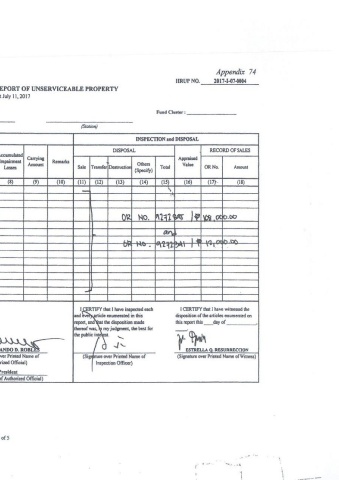 Appendix 74
IIRUP NO. 2017-I-07-0004
EPORT OF UNSERVICEABLE PROPERTY
t July 11, 2017
Fund Cluster :
(Station)
INSPECTION and DISPOSAL
DISPOSAL
RECORD OF SALES
ccumulated Impairment Losses
Carrying Amount
Remarks
Sale
Transfer
Destruction
Others (Specify)
Total
Appraised Value
OR No.
Amount
(8) (9) (10) (11) (12) (13) (14) (15) (16) (17) (18)
OR NO.
and
OR NO.
I CERTIFY that I have inspected each
and every article enumerated in this
report, and that the disposition made
thereof was, in my judgment, the best for
the public interest.
I CERTIFY that I have witnessed the
disposition of the articles enumerated on
this report this ___ day of
ANDO D. ROBLES
ver Printed Name of
rized Official)
President
of Authorized Official)
(Signature over Printed Name of
Inspection Officer)
ESTRELLA Q. RESURRECCION
(Signature over Printed Name of Witness)
of 5